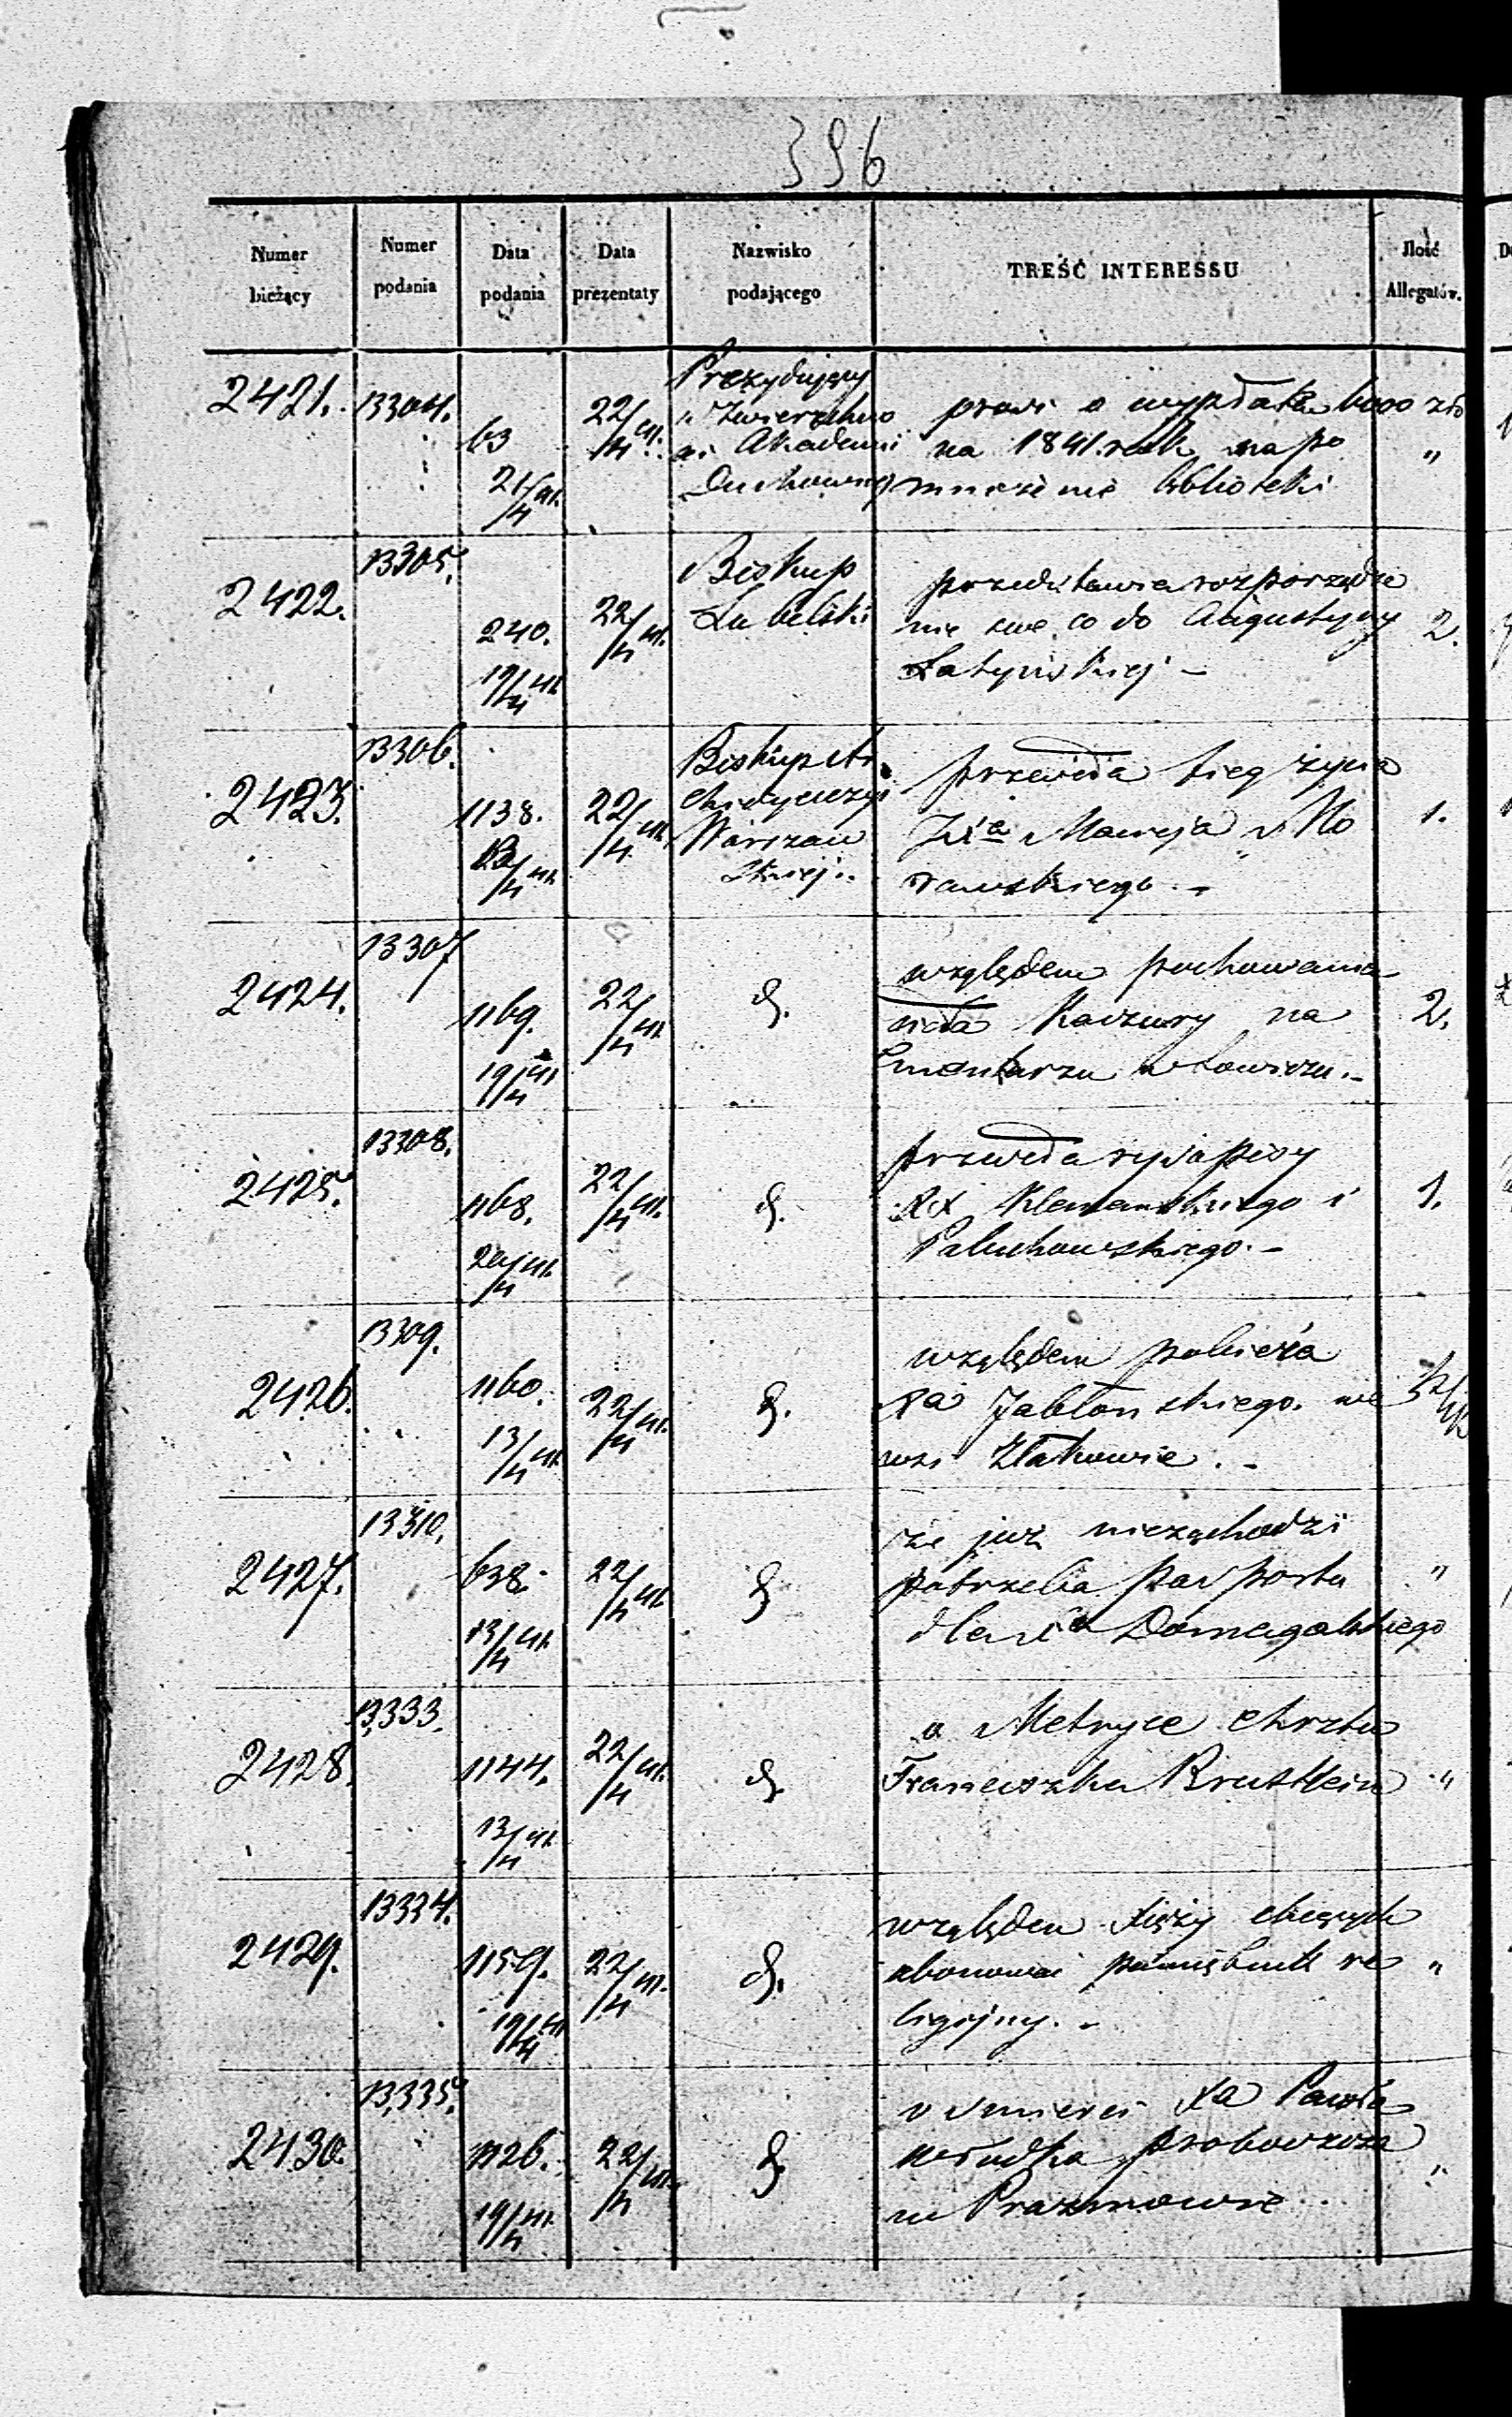 396
Numer bieżący
Numer podania
Data podania
Data prezentaty
Nazwisko podającego
TREŚĆ INTERESSU
Ilość Allegatów.
2421. 13304.
63
21/4
22/4
Prezydujący
w Zwierzchno
ści Akademii
Duchownej
prosi o wypłatę 6000 złp
na 1841. rok na po
mnożenie biblioteki
"
2422. 13305.
240.
19/4
22/4
Biskup
Lubelski
przedstawia rozporządze
nie swe co do Augustyny
Łatyńskiej -
2.
2423. 13306.
1138.
13/4
22/4
Biskup Ar
chidyecezyi
Warszaw
skiej.
przesyła bieg życia
Xa Macieja No
rawskiego. -
1.
2424. 13307
1169.
19/4
22/4
d.
względem pochowania
ciała Kaczury na
Cmentarzu w Łowiczu. -
2.
2425. 13308.
1168.
20/4
22/4
d.
przesyła rysopisy
XX Klemanskiego i
Paluchowskiego. -
1.
2426. 13309.
1160.
13/4
22/4
d.
względem pobicia
Xa Jabłonskiego we
wsi Złakowie. -
2427. 13310.
638.
13/4
22/4
d
że już niezachodzi
potrzeba pasportu
dla Xa Domagalskiego
"
2428. 13,333.
1144.
13/4
22/4
d.
o Metryce chrztu
Franciszka
"
2429. 13334.
1159.
19/4
22/4
d.
względem Xięży chcących
abonować pamiętnik re
ligijny. -
"
2430. 13,335.
1126.
19/4
22/4
d.
o smierci Xa Pawła
proboszcza
w Prazmowie
"